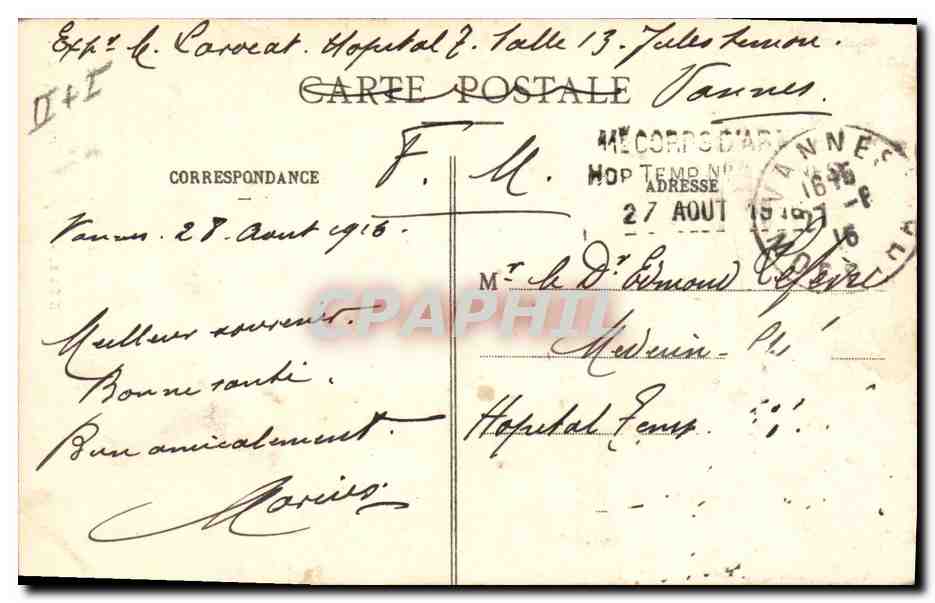 Expr M. Larveat. Hopital 7. Salle 13. Jules Simon.
Vannes.
II + I
CARTE POSTALE
F. M.
CORPS D'AR
HOP TEMP No
27 AOUT 1916
VANNES
16
27 -8
16
CORRESPONDANCE
ADRESSE
Vannes. 28. Aout 1916.
Mr le Dr Edmond Lefèvre
Meilleur souvenir.
Medecin
Bonne santé.
Hopital Temp.
Bien amicalement.
Marius
CPAPHIL